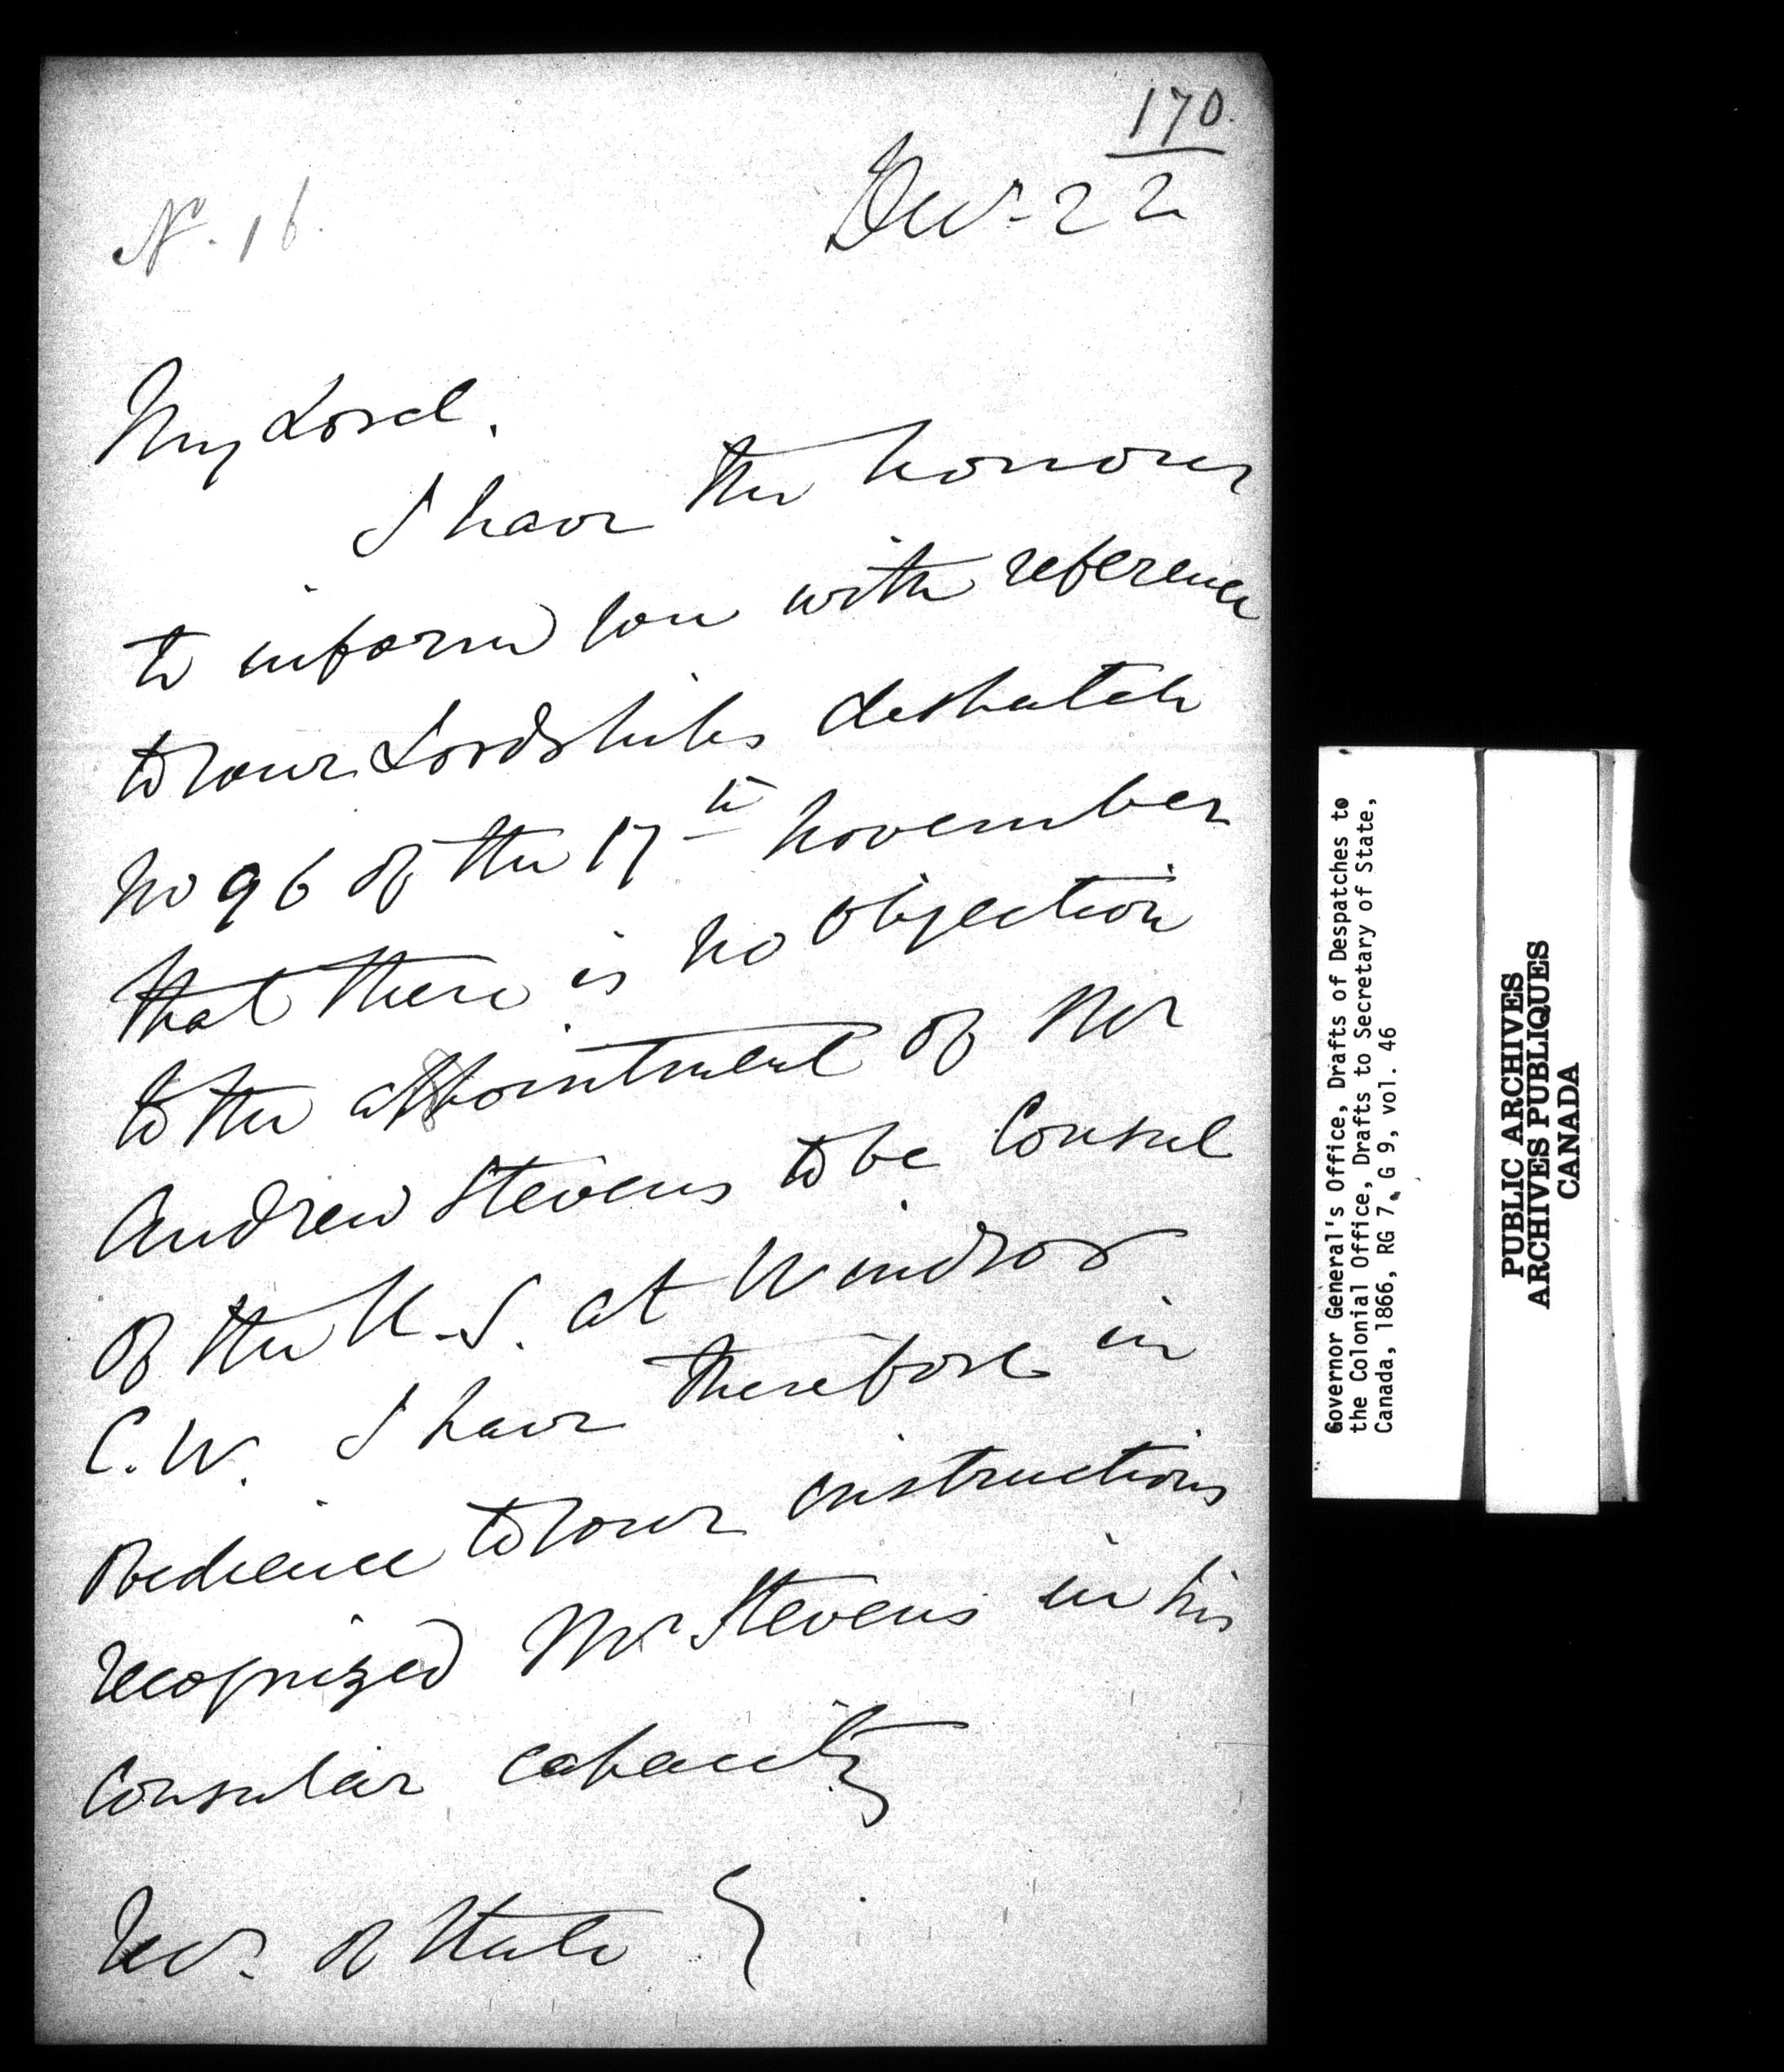 170.
Decr 22
No. 16.
My Lord.
I have the honour
to inform you with reference
to your Lordships despatch
No 96 of the 17th November
that there is no objection
to the appointment of Mr
Andrew Stevens to be Consul
of the U.S. at Windsor
C.W. I have therefore in
obedience to your instructions
recognized Mr Stevens in his
Consular capacity
Secy. of State
Governor General's Office, Drafts of Despatches to
the Colonial Office, Drafts to Secretary of State,
Canada, 1866, RG 7, G 9, vol. 46
PUBLIC ARCHIVES
ARCHIVES PUBLIQUES
CANADA